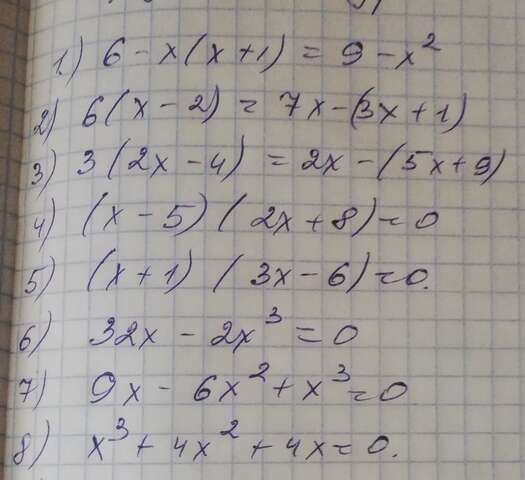 1) 6 - x(x+1) = 9 - x²
2) 6(x - 2) = 7x - (3x + 1)
3) 3(2x - 4) = 2x - (5x + 9)
4) (x - 5)(2x + 8) = 0
5) (x + 1)(3x - 6) = 0.
6) 32x - 2x³ = 0
7) 9x - 6x² + x³ = 0
8) x³ + 4x² + 4x = 0.